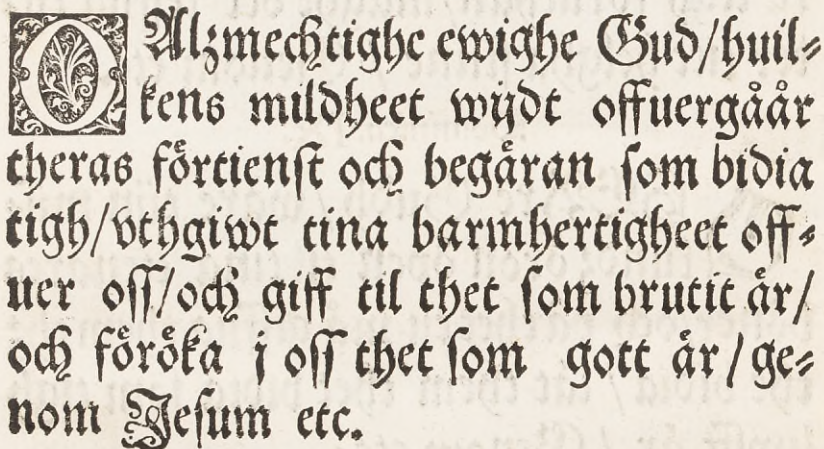 O Alzmechtighe ewighe Gud/huil⸗
kens mildheet wijdt offuergåår
theras förtienst och begäran som bidia
tigh/vthgiwt tina barmhertigheet off⸗
uer oss/och giff til thet som brutit är/
och föröka j oss thet som gott är/ge⸗
nom Jesum etc.